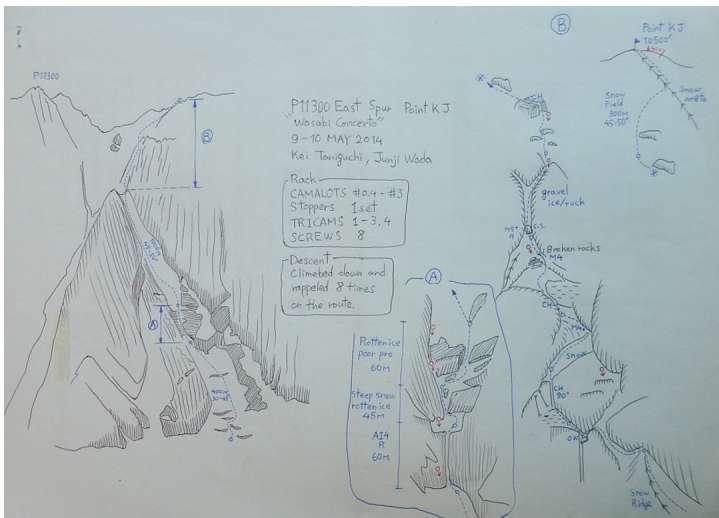 P11300
P11300 East Spur Point KJ
"Wasabi Concerto"
9-10 MAY 2014
Kei Taniguchi, Junji Wada
Rack
CAMALOTS #0.4 - #3
Stoppers 1set
TRICAMS 1-3, 4
SCREWS 8
Descent
Climebed down and
rappeled 8 times
on the route.
B
A
400m
A
Rotten ice
poor pro
60m
Steep snow
rotten ice
45m
AI4
R
60m
B
Point KJ
10500'
Bivy
Snow
arete
Snow
Field
300m
45-50°
CH
gravel
ice/rock
M5+
R
C.S.
Broken rocks
M4
CH
M4
Snow
CH
90°
OW
Snow
Ridge